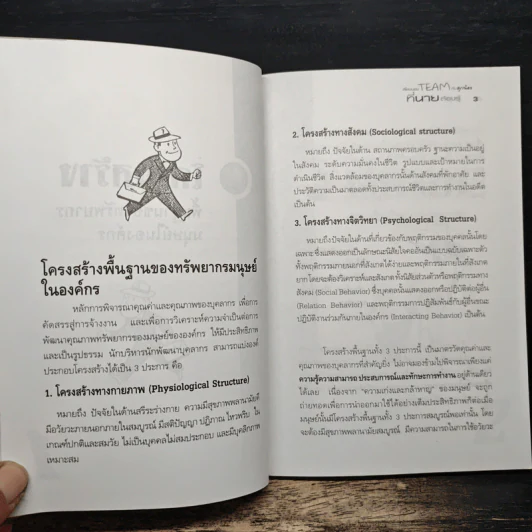 โครงสร้างพื้นฐานของทรัพยากรมนุษย์
ในองค์กร
หลักการพิจารณาคุณค่าและคุณภาพของบุคลากร เพื่อการ
คัดสรรสู่การจ้างงาน และเพื่อการวิเคราะห์ความจำเป็นต่อการ
พัฒนาคุณภาพทรัพยากรมนุษย์ขององค์กร ให้มีประสิทธิภาพ
และเป็นรูปธรรม นักบริหารนักพัฒนาบุคลากร สามารถแบ่งองค์
ประกอบโครงสร้างได้เป็น 3 ประการ คือ
1. โครงสร้างทางกายภาพ (Physiological Structure)
หมายถึง ปัจจัยในด้านสรีระร่างกาย ความมีสุขภาพพลานามัยดี
มีอวัยวะภายนอกภายในสมบูรณ์ มีสติปัญญา ปฏิภาณ ไหวพริบ ใน
เกณฑ์ปกติและสมวัย ไม่เป็นบุคคลไม่สมประกอบ และมีบุคลิกภาพ
เหมาะสม
TEAM
ที่นาย
3
2. โครงสร้างทางสังคม (Sociological structure)
หมายถึง ปัจจัยในด้าน สถานภาพครอบครัว ฐานะความเป็นอยู่
ในสังคม ระดับความมั่นคงในชีวิต รูปแบบและเป้าหมายในการ
ดำเนินชีวิต สิ่งแวดล้อมของบุคลากรนั้นด้านสังคมที่พักอาศัย และ
ประวัติความเป็นมาตลอดทั้งประสบการณ์ชีวิตและการทำงานในอดีต
เป็นต้น
3. โครงสร้างทางจิตวิทยา (Psychological Structure)
หมายถึงปัจจัยในด้านที่เกี่ยวข้องกับพฤติกรรมของบุคคลนั้นโดย
เฉพาะ ซึ่งแสดงออกเป็นลักษณะนิสัยใจคออันเป็นแบบฉบับเฉพาะตัว
ทั้งพฤติกรรมภายนอกที่สังเกตได้ง่ายและพฤติกรรมภายในที่สังเกต
ยากโดยจะต้องวิเคราะห์และสังเกต ทั้งนิสัยส่วนตัวหรือพฤติกรรมทาง
สังคม (Social Behavior) ซึ่งบุคคลนั้นแสดงออกหรือปฏิบัติต่อผู้อื่น
(Relation Behavior) และพฤติกรรมการปฏิสัมพันธ์กับผู้อื่นขณะ
ปฏิบัติงานร่วมกันภายในองค์กร (Interacting Behavior) เป็นต้น
โครงสร้างพื้นฐานทั้ง 3 ประการนี้ เป็นมาตรวัดคุณค่าและ
คุณภาพของบุคลากรที่สำคัญยิ่ง ไม่อาจมองข้ามไปพิจารณาเพียงแต่
ความรู้ความสามารถ ประสบการณ์และทักษะการทำงาน อยู่ด้านเดียว
ได้เลย เนื่องจาก "ความเก่งและกล้าหาญ" ของมนุษย์ จะถูก
ถ่ายทอดเพื่อการนำออกมาใช้ได้อย่างเต็มประสิทธิภาพก็ต่อเมื่อ
มนุษย์นั้นมีโครงสร้างพื้นฐานทั้ง 3 ประการสมบูรณ์พอเท่านั้น โดย
จะต้องมีสุขภาพพลานามัยสมบูรณ์ มีความสามารถในการใช้อวัยวะ